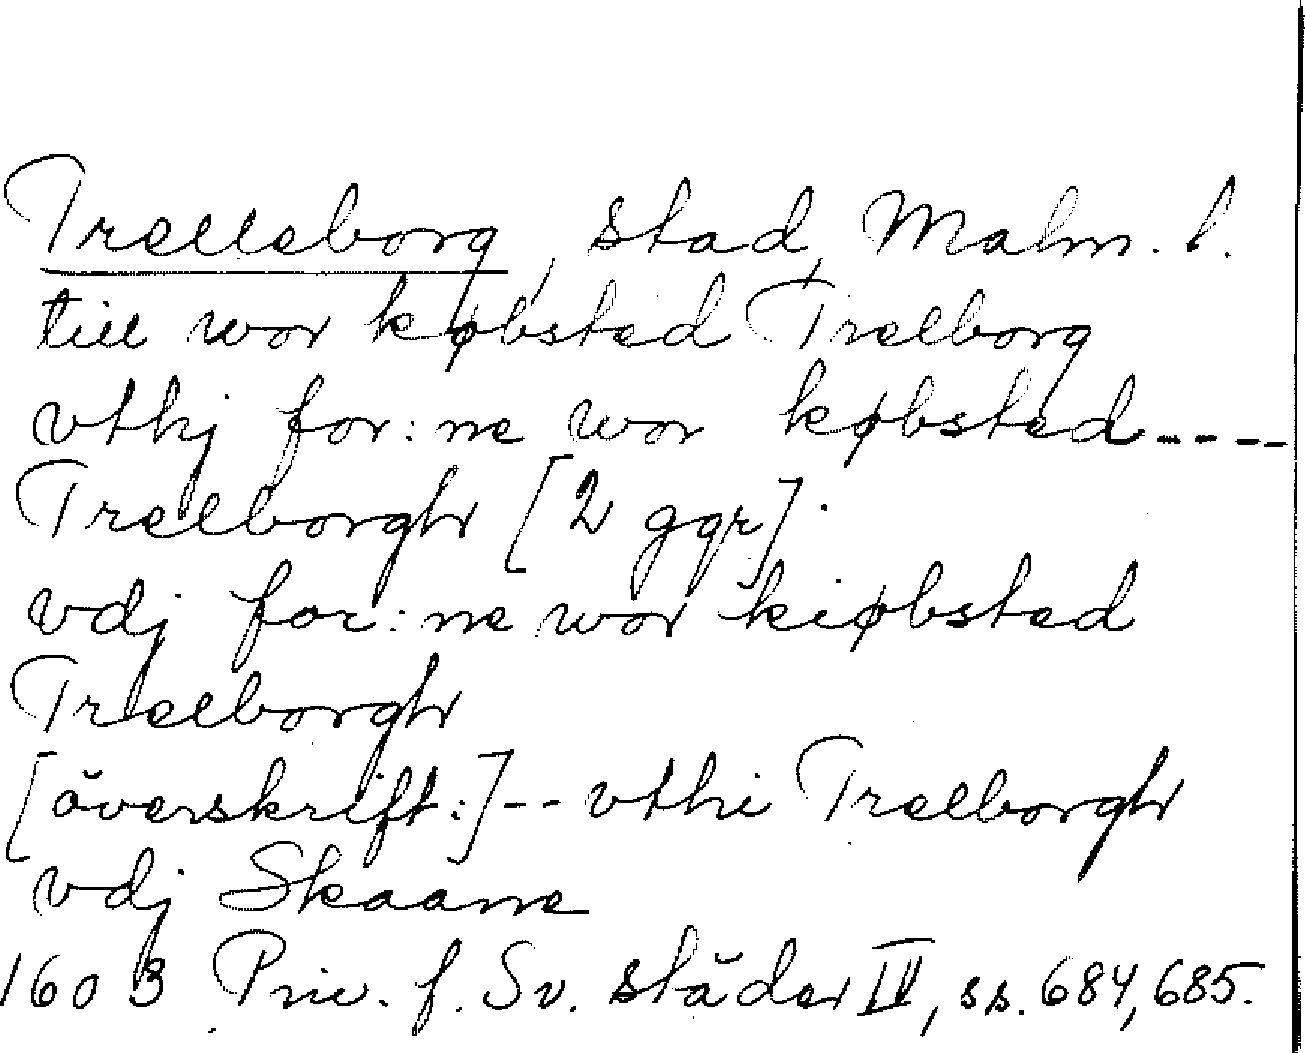 Trelleborg, stad, Malm. l.
till wor købsted Trelborg
vthj for:ne wor købsted----
Trelborgh [2 ggr].
vdj for:ne wor kiøbsted
Trælborgh
[överskrift:]-- vthi Trelborgh
vdj Skaane
1603 Priv. f. Sv. städer IV, ss. 684, 685.